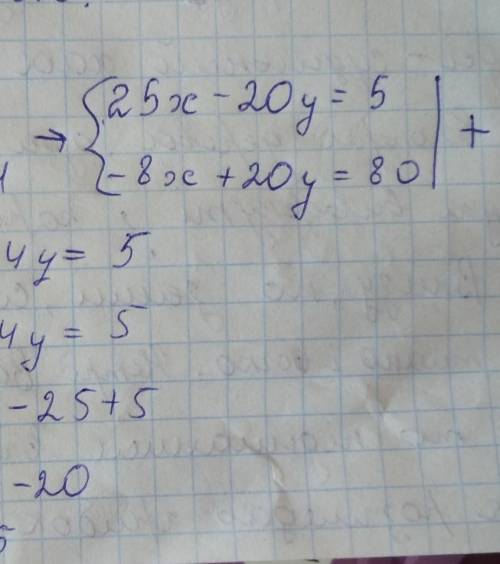 → { 25x - 20y = 5 | +
-8x + 20y = 80
4y = 5
4y = 5
-25+5
-20
5